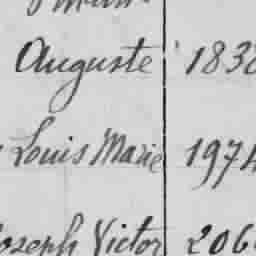 Auguste 1838
Louis Marie 1974
Joseph Victor 206